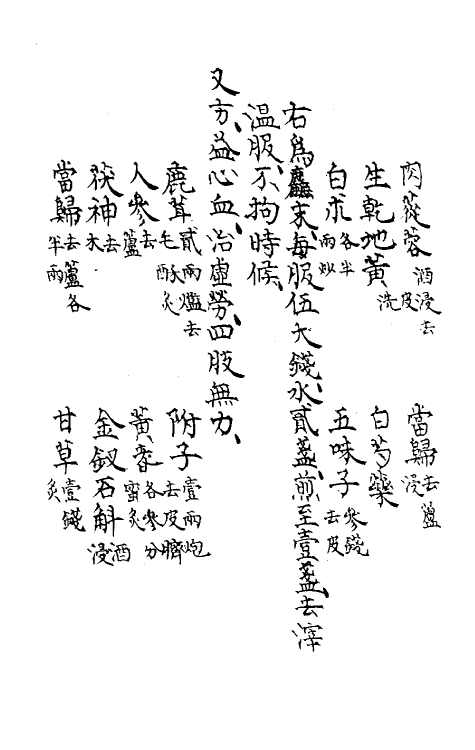 肉蓯蓉酒浸去皮洗　當歸去蘆浸
生乾地黃　白芍藥
白朮各半兩炒　五味子叄錢去皮
右爲麤末、每服伍大錢、水貳盞、煎至壹盞、去滓
温服、不拘時候、
又方、益心血、治虛勞、四肢無力、
鹿茸貳兩爁去毛酥炙　附子壹兩炮去皮臍
人參去蘆　黃耆各叄分蜜炙
茯神去木　金釵石斛酒浸
當歸去蘆各半兩　甘草壹錢炙